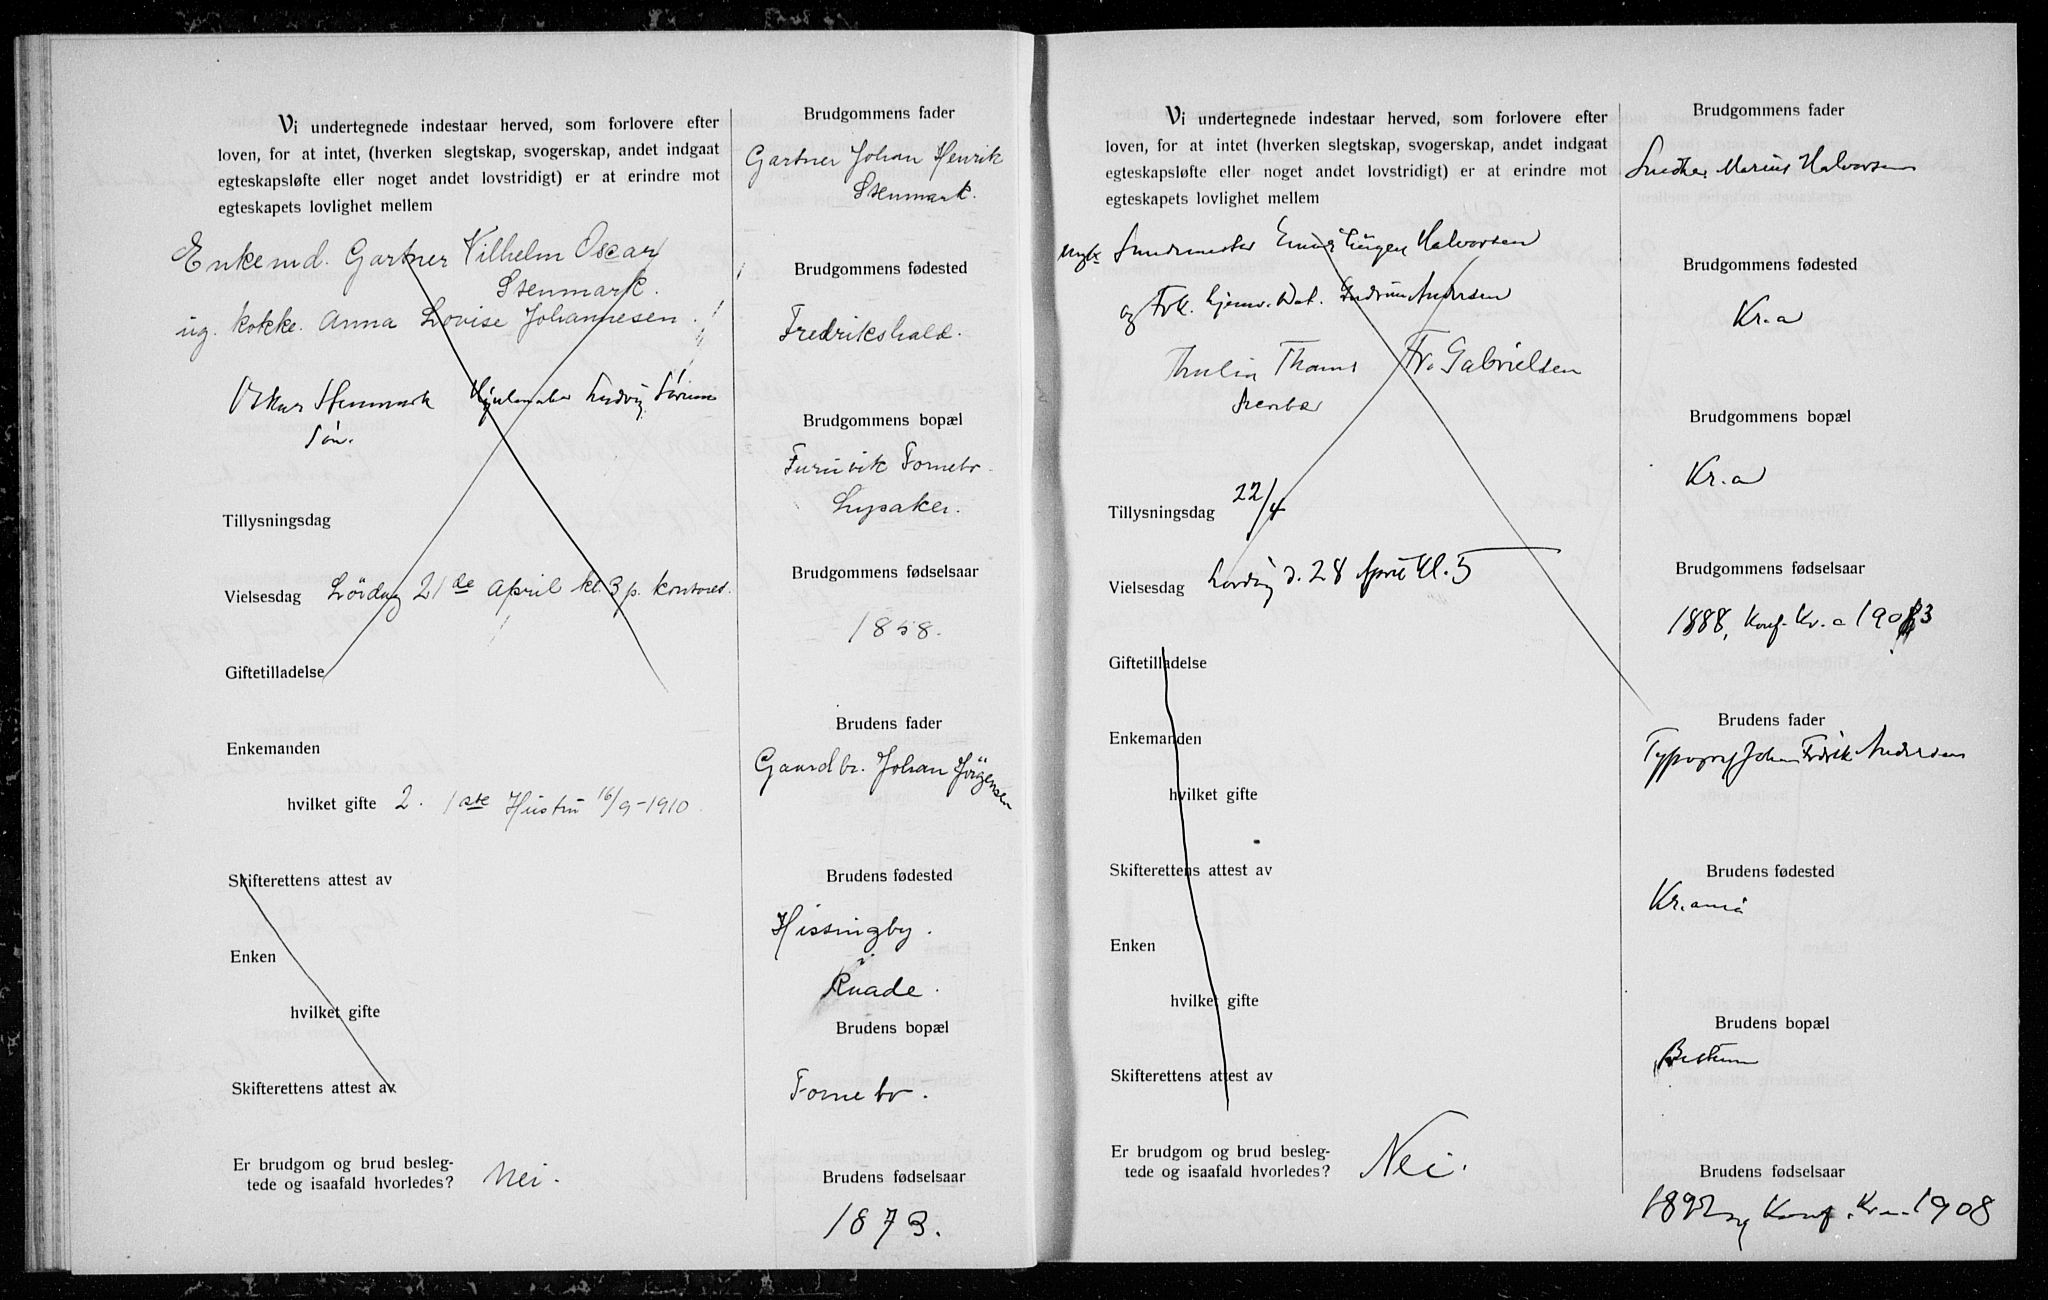 Vi undertegnede indestaar herved, som forlovere efter
loven, for at intet, (hverken slegtskap, svogerskap, andet indgaat
egteskapsløfte eller noget andet lovstridigt) er at erindre mot
egteskapets lovlighet mellem
Enkemd. Gartner Vilhelm Oscar
Stenmark.
ug. kokke. Anna Lovise Johannesen.
Oskar Stenmark Hjulmaker Ludvig
Tillysningsdag
Vielsesdag Lördag 21de april kl. 3 p. kontoret.
Giftetilladelse
Enkemanden
hvilket gifte 2. 1ste Hustru 16/9-1910.
Skifterettens attest av
Enken
hvilket gifte
Skifterettens attest av
Er brudgom og brud besleg-
tede og isaafald hvorledes? Nei.
Brudgommens fader
Gartner Johan Henrik
Stenmark.
Brudgommens fødested
Fredrikshald.
Brudgommens bopæl
Furuvik Fornebo.
Lysaker.
Brudgommens fødselsaar
1858.
Brudens fader
Gaardbr. Johan Jörgensen
Brudens fødested
Hissingby.
Raade.
Brudens bopæl
Fornebo.
Brudens fødselsaar
1873.
Vi undertegnede indestaar herved, som forlovere efter
loven, for at intet (hverken slegtskap, svogerskap, andet indgaat
egteskapsløfte eller noget andet lovstridigt) er at erindre mot
egteskapets lovlighet mellem
Ungk. Halvorsen
og Frk. Andersen
Thams Fr. Gabrielsen
Tillysningsdag 22/4
Vielsesdag Lørdag d. 28 April Kl. 5
Giftetilladelse
Enkemanden
hvilket gifte
Skifterettens attest av
Enken
hvilket gifte
Skifterettens attest av
Er brudgom og brud besleg-
tede og isaafald hvorledes? Nei.
Brudgommens fader
Marius Halvorsen
Brudgommens fødested
Kr.a
Brudgommens bopæl
Kr.a
Brudgommens fødselsaar
1888, Konf. Kr.a 1903
Brudens fader
Typograf Johan Fredrik Andersen
Brudens fødested
Kr.ania
Brudens bopæl
Bestum
Brudens fødselsaar
1892 og Konf. Kr.a. 1908